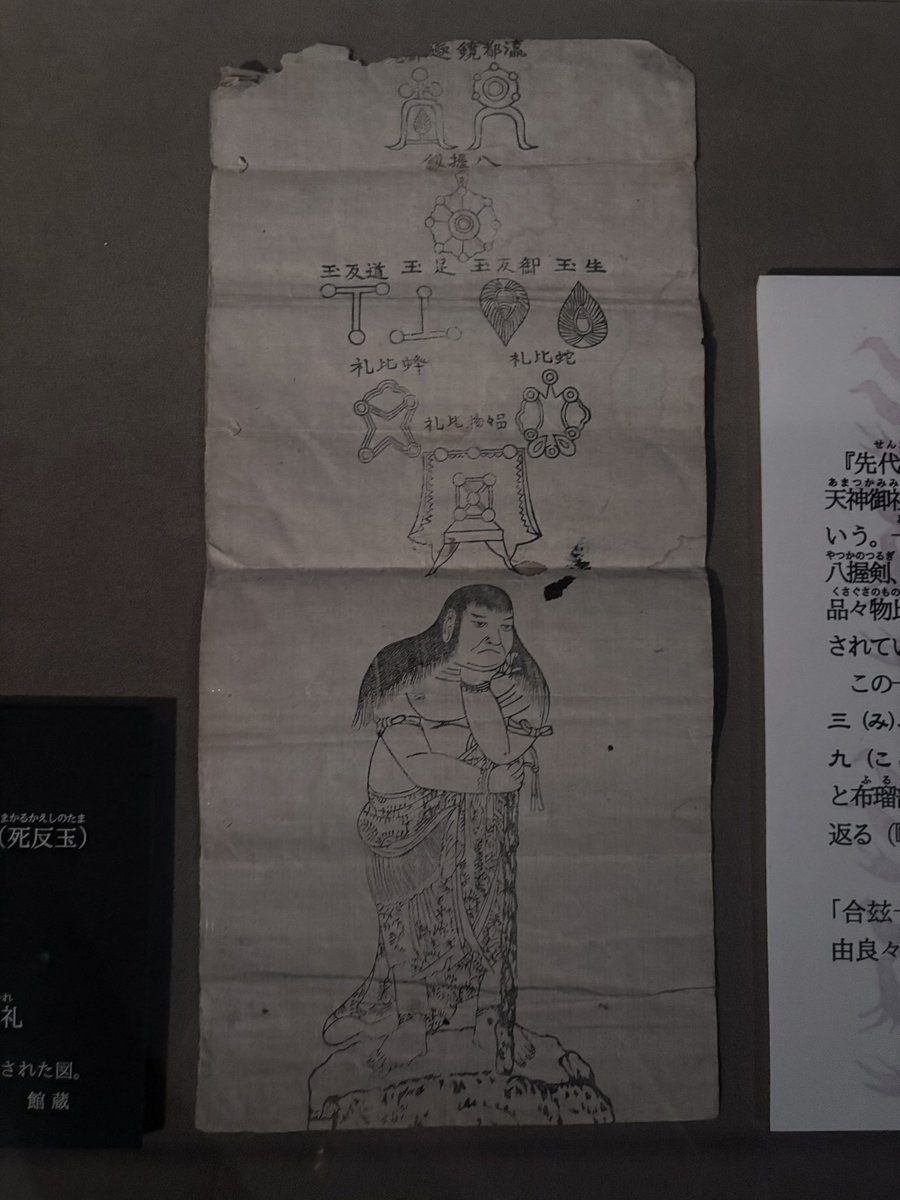 瀛都鏡邊
八握劔
生玉 御反玉 足玉 道反玉
蛇比礼 蜂比礼
品々物比礼
まかるかえしのたま
(死反玉)
れ
礼
された図。
館蔵
せん
『先代
あまつかみみ
天神御祖
いう。
やつかのつるぎ
八握剣、
くさぐさのもの
品々物比
されてい
この一
三(み)、
九(こ
ふる
と布瑠
返る(
「合玆
由良々